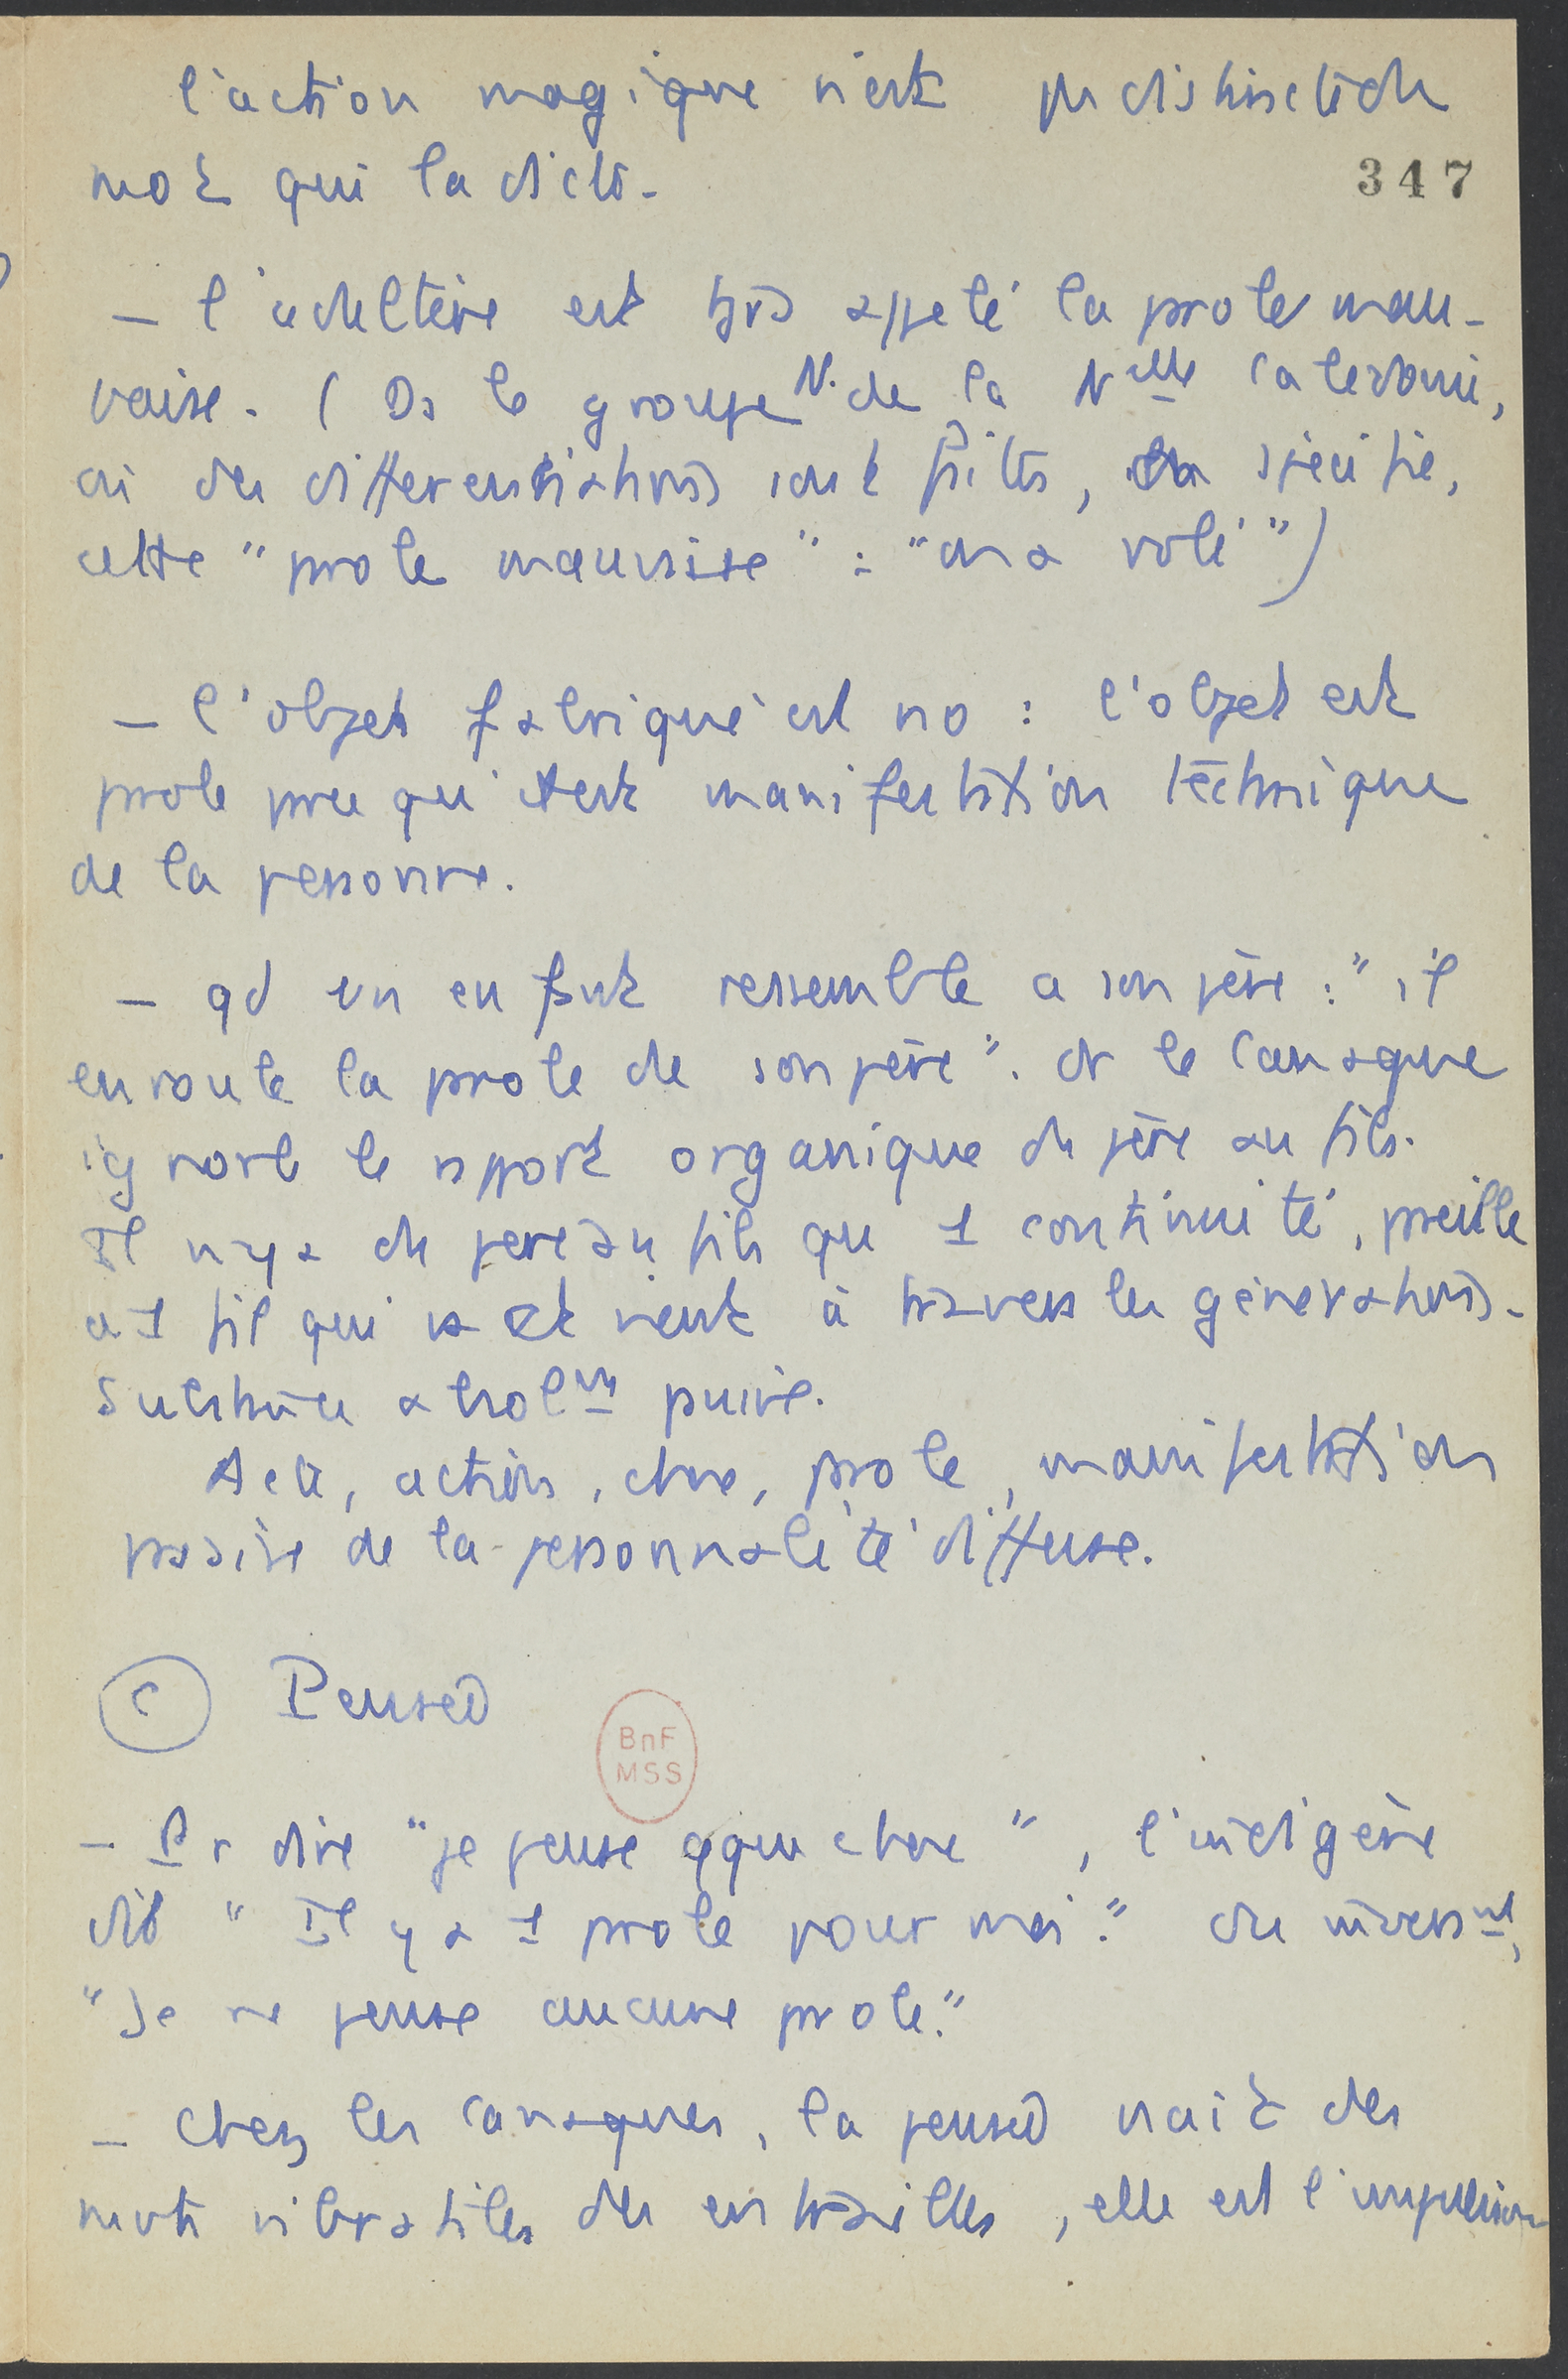 l'action magique n'est pas distincte du
mot qui la dicte.
347
— l'adultère est tjrs appelé la prole mau-
vaise. (Ds le groupe N. de la Nelle Caledonie,
où des differentiations sont faites, on spécifie,
cette "prole mauvaise" : "on a volé")
— l'objet fabriqué est no : l'objet est
prole pce qu'il est manifestation technique
de la personne.
— qd un enfant ressemble a son père : "il
enroule la prole de son père". Or le Canaque
ignore le rapport organique du père au fils.
Il n'y a du père au fils que 1 continuité, preille
a 1 fil qui va et vient à travers les générations.
Substance abrolmt
Acte, action, chose, prole, manifestation
passive de la personnalité diffuse.
(C) Pensée
BnF
MSS
— Pr dire "je pense qque chose", l'indigène
dit "Il y a 1 prole pour moi." ou inversmt,
"Je ne pense aucune prole."
— Chez les Canaques, la pensée naît des
mvts vibratiles des entrailles, elle est l'impulsion